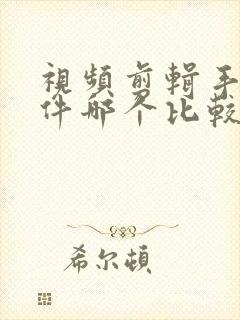 視頻剪輯手
件哪个比較
希尔頓